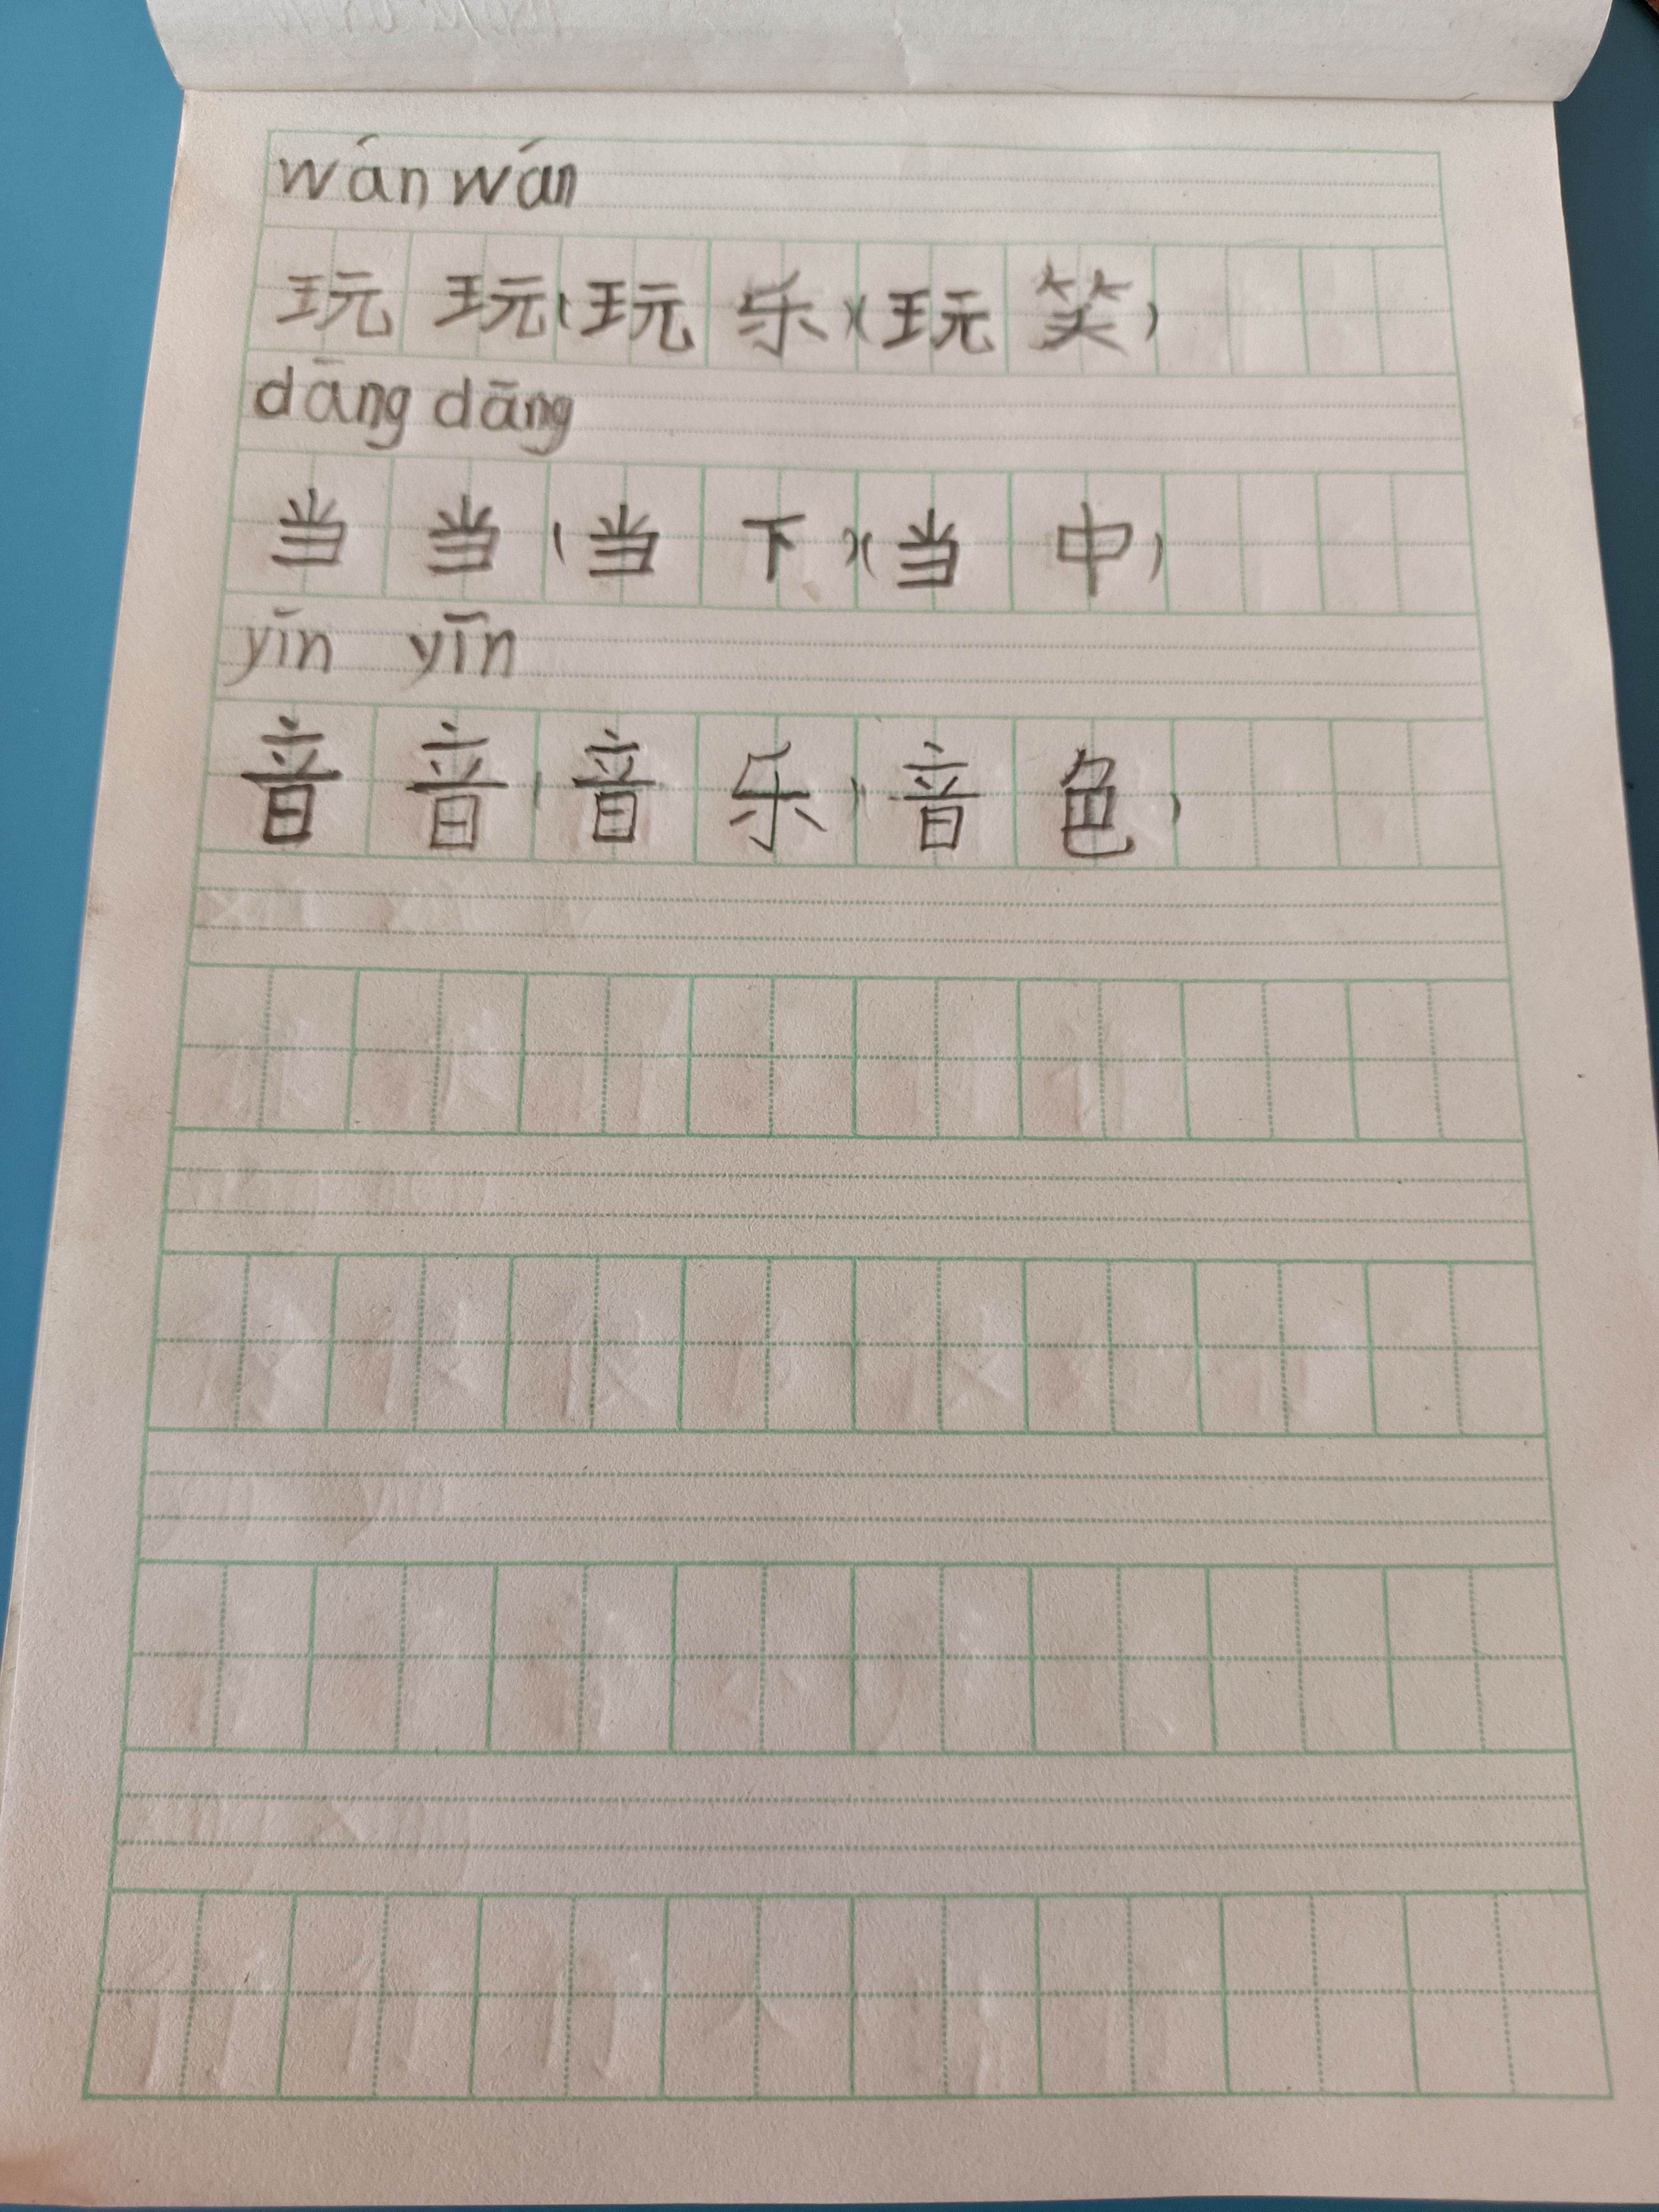 wán wán
玩玩(玩乐)(玩笑)
dāng dāng
当当(当下)(当中)
yīn yīn
音音(音乐)音色)